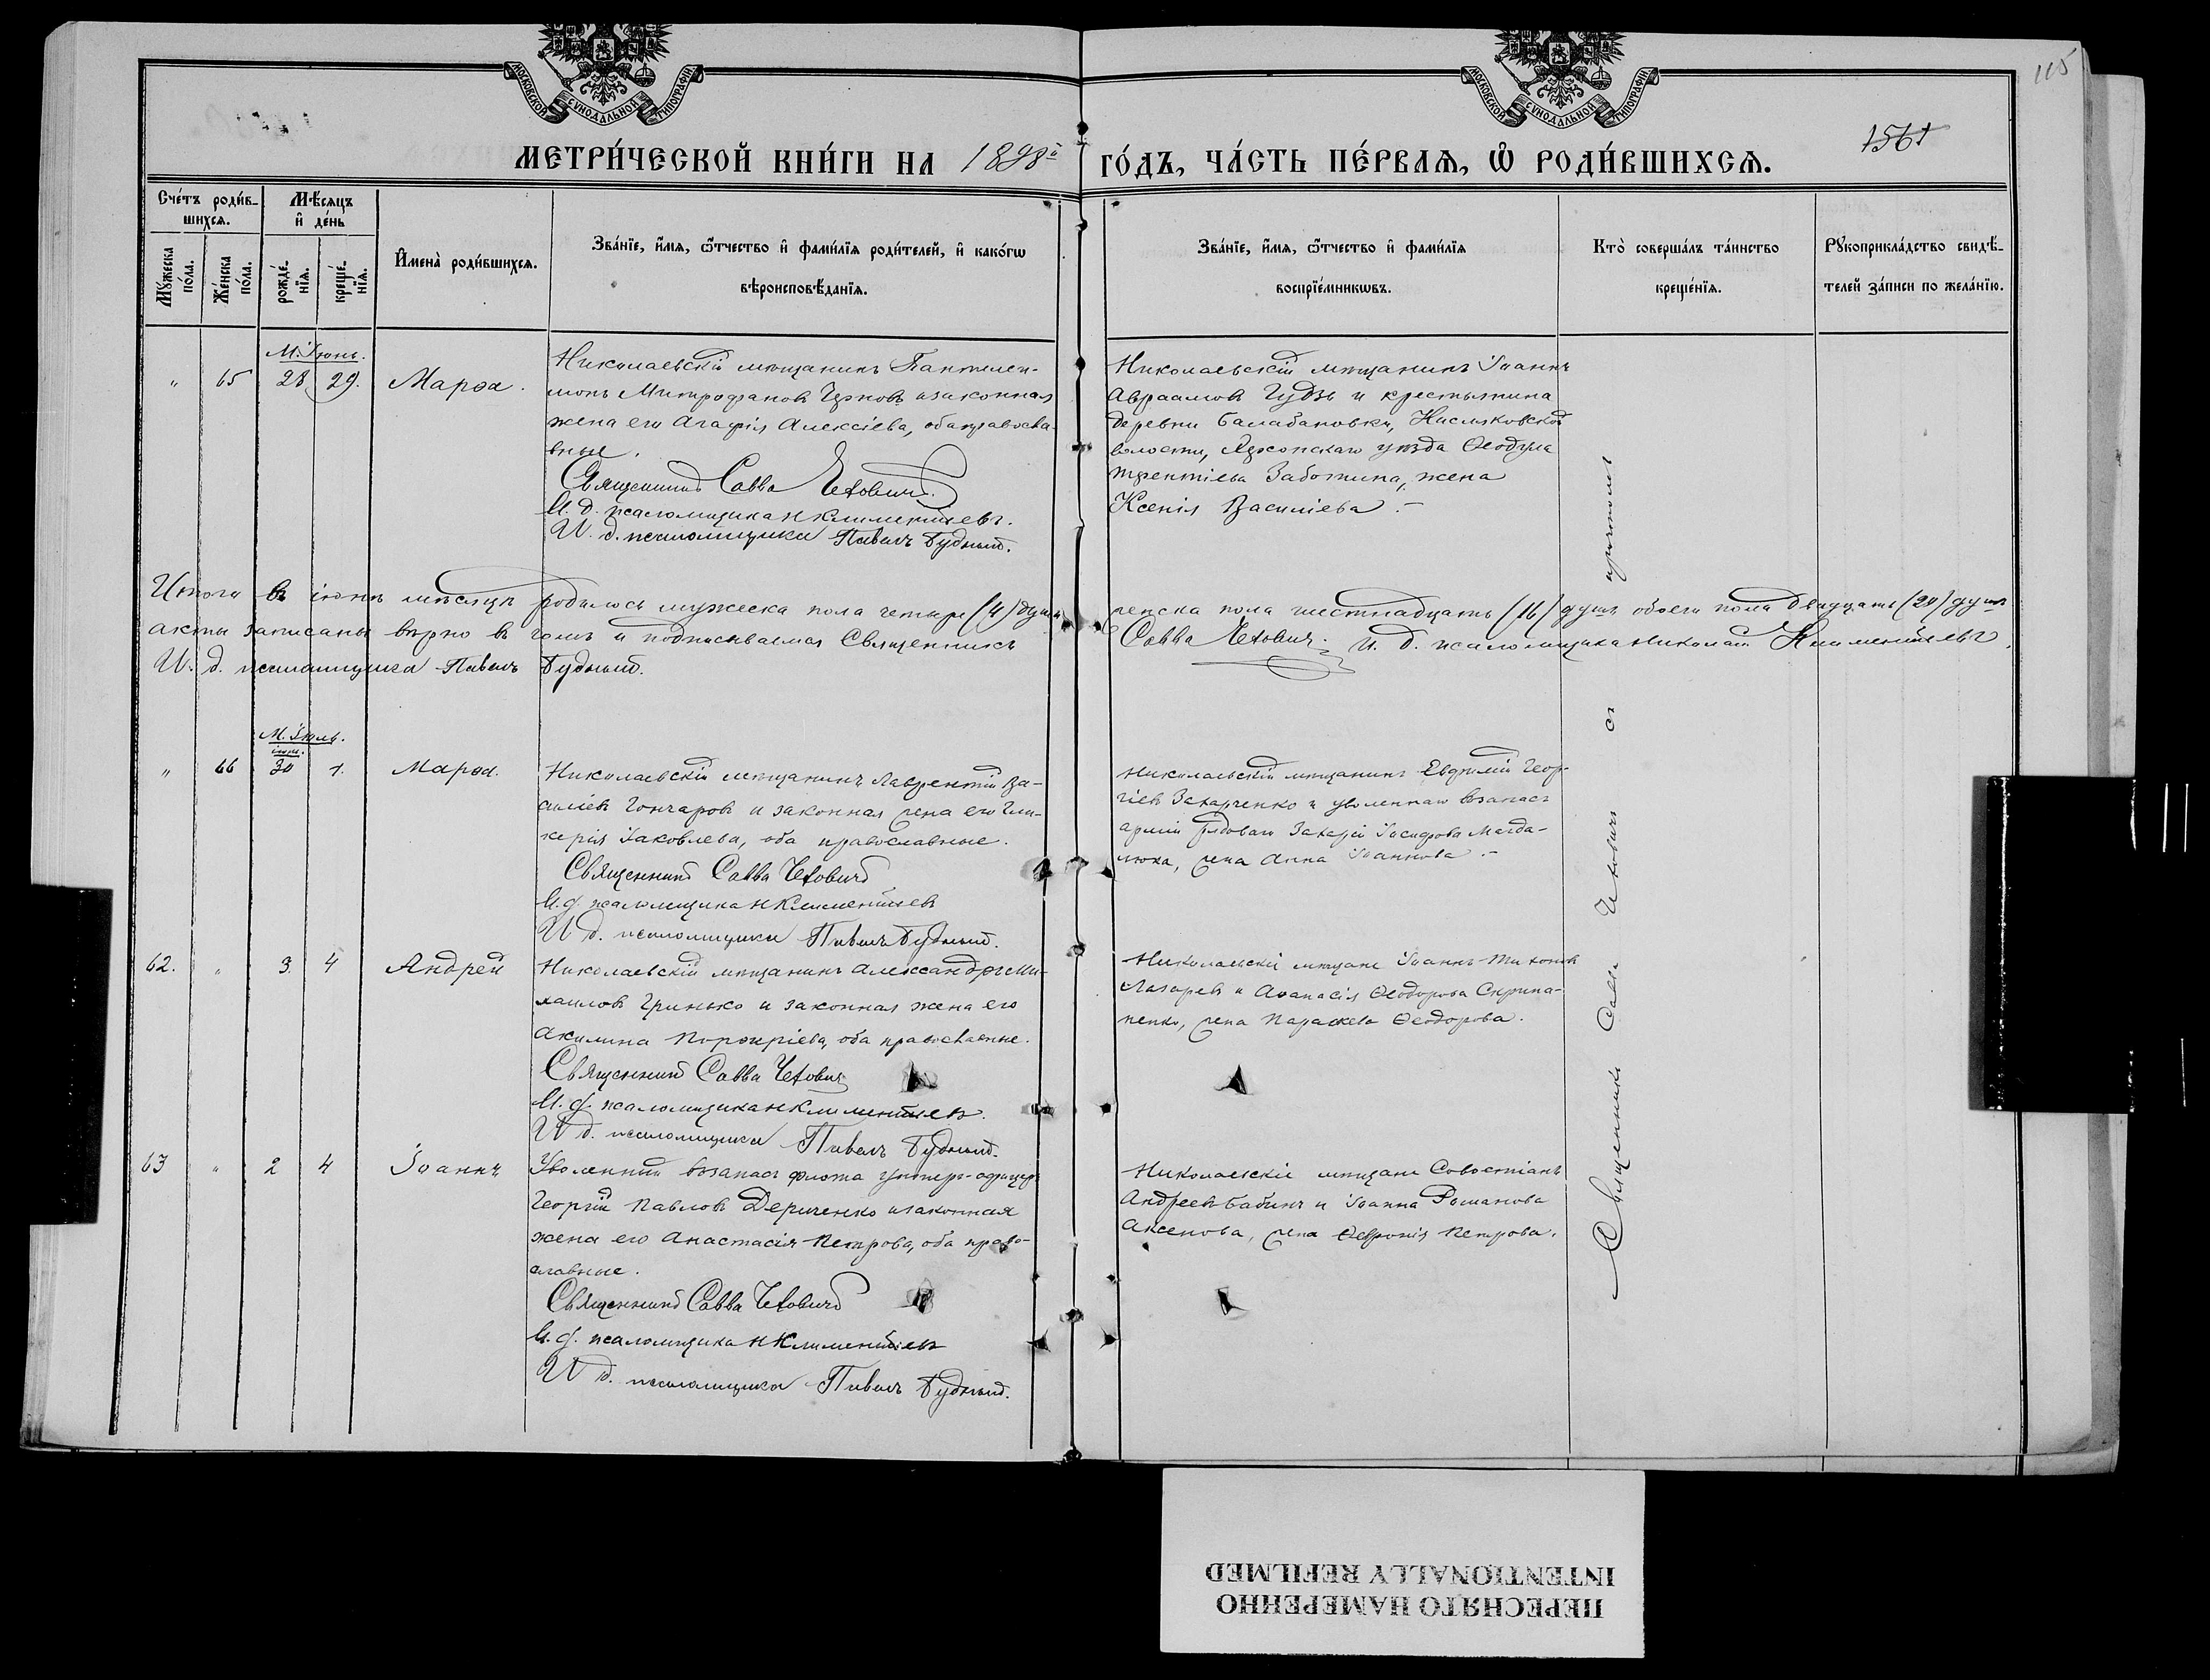 115
1561
МОСКОВСКОЙ СѴНОДАЛЬНОЙ ТИПОГРАФІИ
МОСКОВСКОЙ СѴНОДАЛЬНОЙ ТИПОГРАФІИ
МЕТРИ́ЧЕСКОЙ КНИ́ГИ НА 1898й ГО́ДЪ, ЧА́СТЬ ПЕ́РВАѦ, Ѽ РОДИ́ВШИХСѦ.
Сче́тъ роди́в-
шихсѧ.
Мꙋ́жеска по́ла.
Же́нска по́ла.
Мѣ́сѧцъ
и҆ де́нь
рожде́-нїѧ.
креще́-нїѧ.
И҆мена̀ роди́вшихсѧ.
Зва́нїе, и҆́мѧ, ѻ҆́тчество и҆ фами́лїѧ роди́телей, и҆ како́гѡ
вѣроисповѣ́данїѧ.
Зва́нїе, и҆́мѧ, ѻ҆́тчество и҆ фами́лїѧ
воспрїе́мникѡвъ.
Кто̀ соверша́лъ та́инство
креще́нїѧ.
Рꙋкоприкла́дство свидѣ́-
телей за́писи по жела́нїю.
М. Іюнь.
" 65 28 29. Марѳа.
Николаевскій мѣщанинъ Пантелеи-
монъ Митрофановъ Чернов и законная
жена его Агафія Алексіева, оба правосла-
вные.
Священникъ Савва Чехович.
И. д. псаломщика Н Климентіевъ.
И. д. псаломщика Павелъ Будный.
Николаевскій мѣщанинъ Іоаннъ
Авраамовъ Гудзь и крестьянина
деревни Балабановки, Кисляковской
волости, Херсонскаго уѣзда Ѳеодула
Терентіева Заботина, жена
Ксенія Василіева.-
Итого въ іюнѣ мѣсяцѣ родилось мужеска пола четыре (4) души женска пола шестнадцать (16) душъ обоего пола двадцать (20) душъ
акты записаны вѣрно въ чемъ и подписываемся Священникъ Савва Чехович. И. д. псаломщика Николай Климентіевъ.
И. д. псаломщика Павелъ Будный.
М. Іюль.
іюнь.
" 66 30 1. Марѳа.
Николаевскій мѣщанинъ Лаврентій Ва-
силіевъ Гончаровъ и законная жена его Гли-
керія Іаковлева, оба православные.
Священникъ Савва Чеховичъ
И. д. псаломщика Н Климентіевъ
И д. псаломщика Павелъ Будный.
Николаевскій мѣщанинъ Евфимій Геор-
гіевъ Захарченко и уволеннаго въ запасъ
арміи рядоваго Захарія Іосифова Магда-
люка, жена Анна Іоаннова.-
62. " 3. 4 Андрей
Николаевскій мѣщанинъ Александръ Ми-
хаиловъ Гринько и законная жена его
Акилина Порфиріева, оба православные.
Священникъ Савва Чехович
И. д. псаломщика Н Климентіевъ.
И д. псаломщика Павелъ Будный.
Николаевскіе мѣщане Іоаннъ Тихоновъ
Лазаревъ и Аѳанасія Ѳеодорова Скрипа-
ненко, жена Параскева Ѳеодорова.
63 " 2 4 Іоаннъ
Уволенный въ запасъ флота унтеръ-офицеръ
Георгій Павловъ Дериченко и законная
жена его Анастасія Петрова, оба право-
славные.
Священникъ Савва Чеховичъ
И. д. псаломщика Н Климентіевъ
И д. псаломщика Павелъ Будный.
Николаевскіе мѣщане Савостіанъ
Андреевъ Бабинъ и Іоанна Романова
Аксенова, жена Ѳевронія Петрова.
Священникъ Савва Чеховичъ съ причтомъ
ПЕРЕСНЯТО НАМЕРЕННО
INTENTIONALLY REFILMED